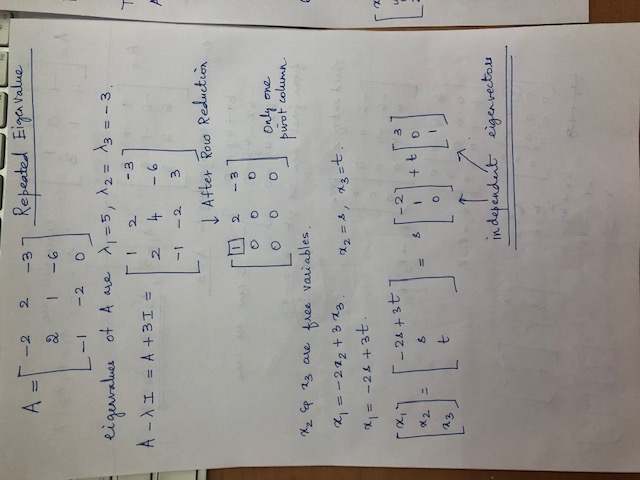 Repeated Eigenvalue
A = [ -2 2 -3
2 1 -6
-1 -2 0 ]
eigenvalues of A are λ₁ = 5, λ₂ = λ₃ = -3.
A - λI = A + 3I = [ 1 2 -3
2 4 -6
-1 -2 3 ]
↓ After Row Reduction
[ 1 2 -3
0 0 0
0 0 0 ]
Only one
pivot column.
x₂ & x₃ are free variables.
x₁ = -2x₂ + 3x₃. x₂ = s, x₃ = t.
x₁ = -2s + 3t.
[ x₁ x₂ x₃ ] = [ -2s + 3t s t ] = s [ -2 1 0 ] + t [ 3 0 1 ]
independent eigenvectors